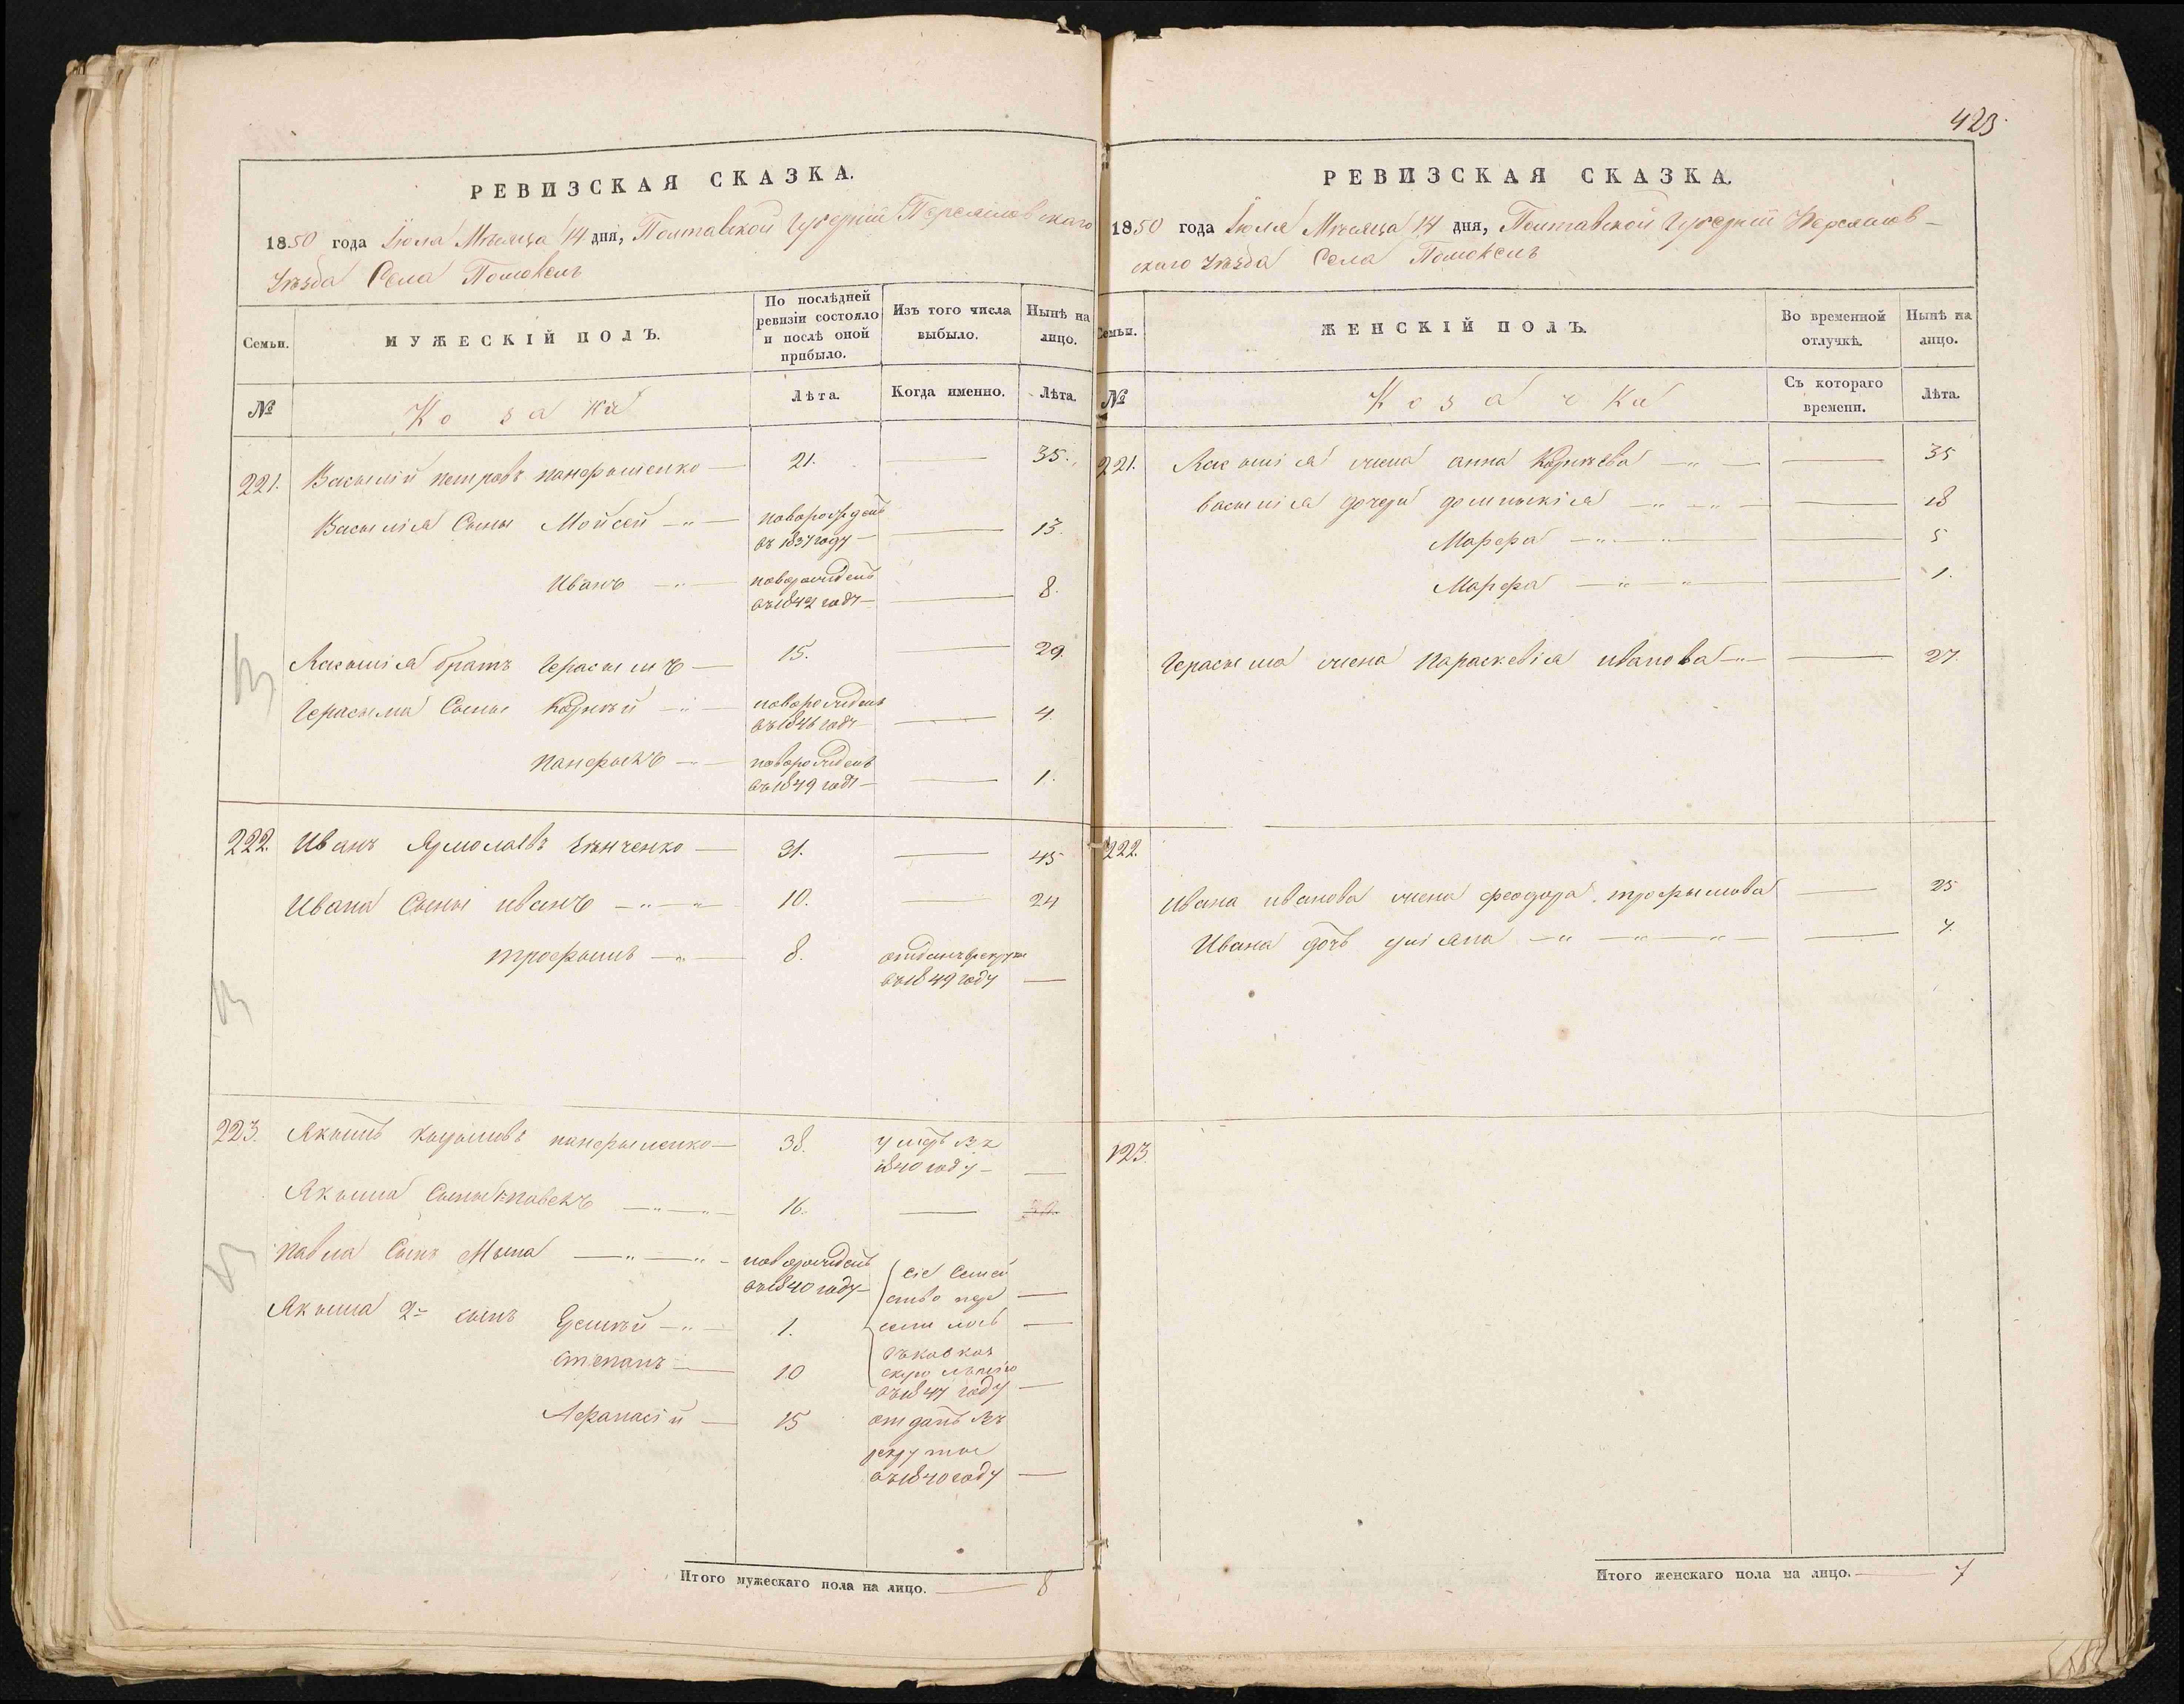 423
РЕВИЗСКАЯ СКАЗКА.
1850 года Іюля Мѣсяца 14 дня, Полтавской Губерніи Переяславскаго
Уѣзда Села Помоклей
Семьи.
МУЖЕСКІЙ ПОЛЪ.
По послѣдней
ревизіи состояло
и послѣ оной
прибыло.
Изъ того числа
выбыло.
Нынѣ на
лицо.
№
Козаки
Лѣта.
Когда именно.
Лѣта.
221. Василій петровъ панфыленко 21. 35.
Василія Сыны Мойсей новорожденъ 13.
въ 1837 году
Иванъ новорожденъ 8.
въ 1842 году
Василія братъ Герасимъ 15. 29.
Герасыма Сыны Корнѣй новорожденъ 4.
въ 1846 году
панфылъ новорожденъ 1.
въ 1849 году
222. Иванъ Ярмолаевъ 31. 45
Ивана Сыны иванъ 10. 24
трофымъ 8. отданъ рекруты
въ 1849 году
223. Якымъ панфыленко 38. умеръ въ
1840 году
Якыма Сыны павелъ 16.
павла Сынъ новорожденъ
въ 1840 году
Сіе Семей
ство пере
Якыма 2й сынъ 1.
селилось
степанъ 10
въ 1847 году
Афанасій 15 отданъ въ
рекруты
въ 1840 году
Итого мужескаго пола на лицо. 8
РЕВИЗСКАЯ СКАЗКА.
1850 года Іюля Мѣсяца 14 дня, Полтавской Губерніи Переяслов-
скаго Уѣзда Села Помоклей
Семьи.
ЖЕНСКІЙ ПОЛЪ.
Во временной
отлучкѣ.
Нынѣ на
лицо.
№
Козачки
Съ котораго
времени.
Лѣта.
221. Василія жена анна Корнѣева 35
василія дочери домникія 18
Марфа 5
Марфа 1.
Герасыма жена параскевія иванова 27.
222.
Ивана иванова жена феодора трофымова 25
Ивана дочь уліяна 4.
123.
Итого женскаго пола на лицо. 7